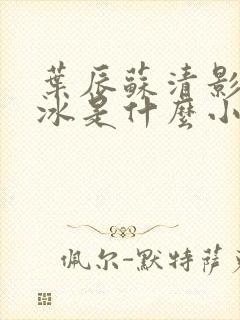 葉辰蘇清影
冰是什麼小
佩尔-默特萨